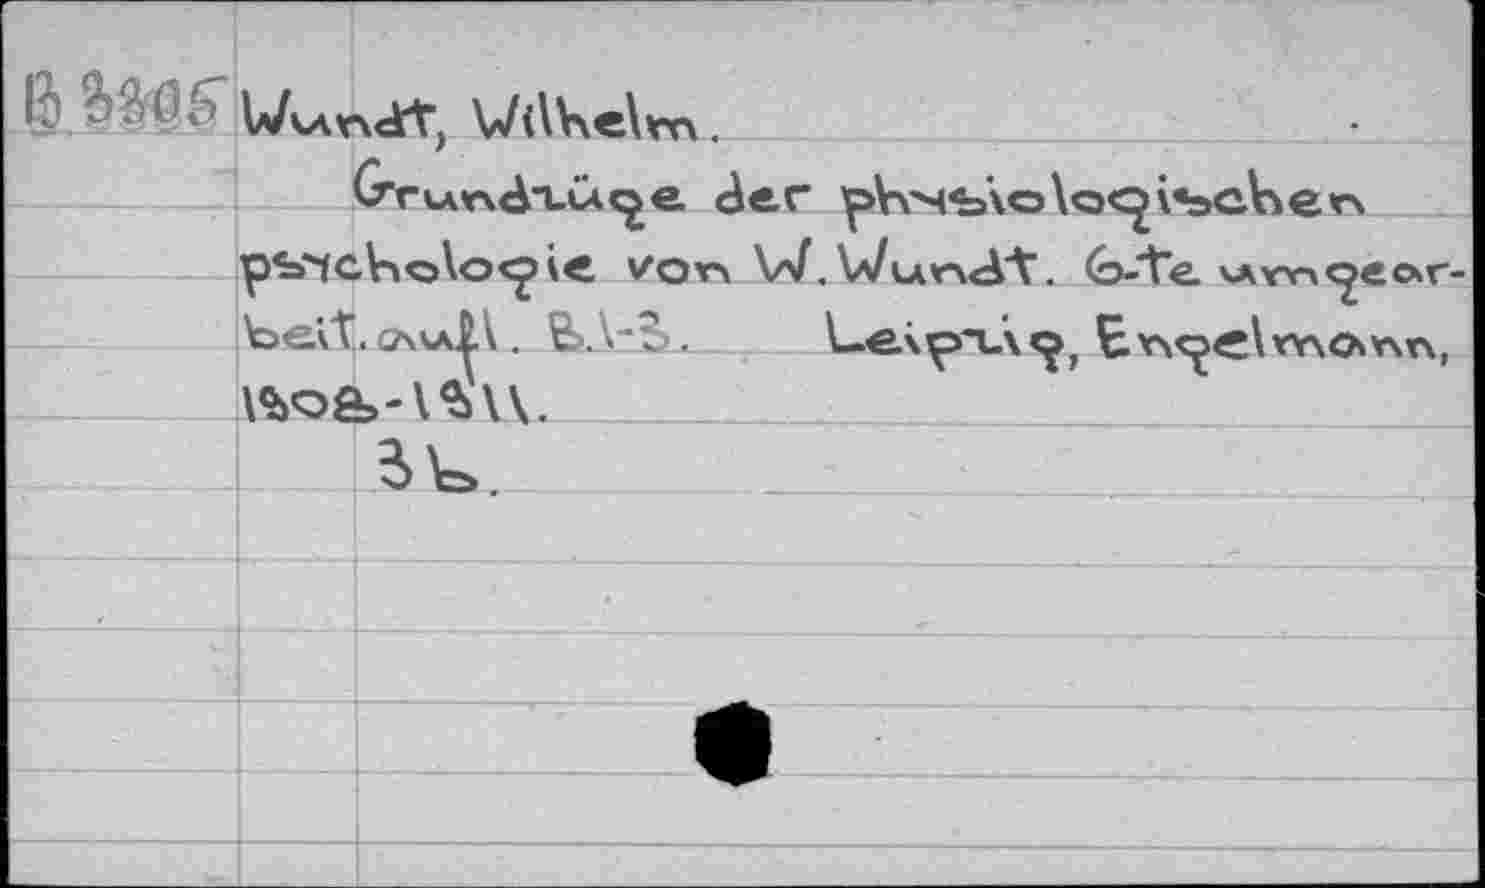 Wundt, Wilhelm.
Grundzüge der physiologischen
psychologie von W. Wundt. 6-te umgear-
beit. aufl. B.1-3. Leipzig, Engelmann,
1908-1911.
3 b.